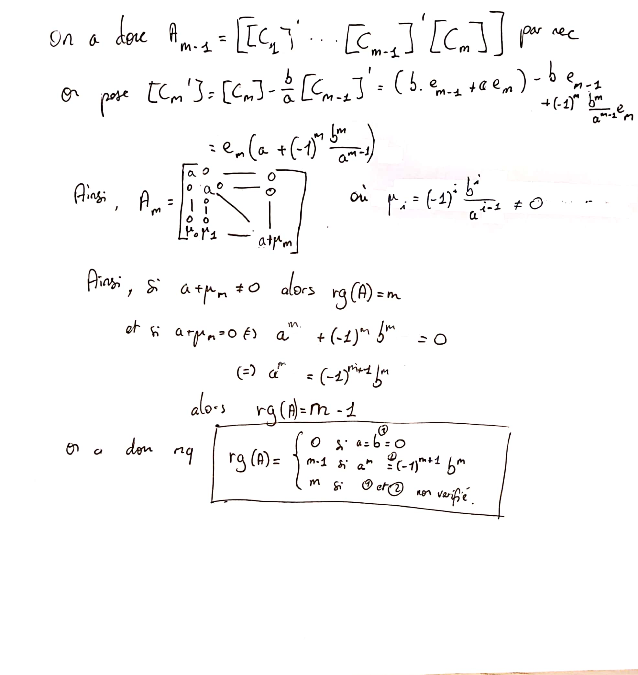 On a donc A_{m-1} = [[C_1]' ... [C_{m-1}]' [C_m]] par rec
on pose [C_m'] = [C_m] - b/a [C_{m-1}]' = (b. e_{m-1} + a e_m) - b e_{m-1} + (-1)^m b^m/a^{m-1} e_m
= e_m (a + (-1)^m b^m/a^{m-1})
Ainsi, A_m = [a 0 — 0
0 a 0 — 0
| |
0 0
μ_0 μ_1 — a+μ_m] où μ_i = (-1)^i b^i/a^{i-1} ≠ 0 ......
Ainsi, si a+μ_m ≠ 0 alors rg(A) = m
et si a+μ_m = 0 (=) a^m + (-1)^m b^m = 0
(=) a^m = (-1)^{m+1} b^m
alors rg(A) = m - 1
on a donc mq rg(A) = { 0 si a = b = 0 ①
m-1 si a^m = (-1)^{m+1} b^m ②
m si ① et ② non verifié.